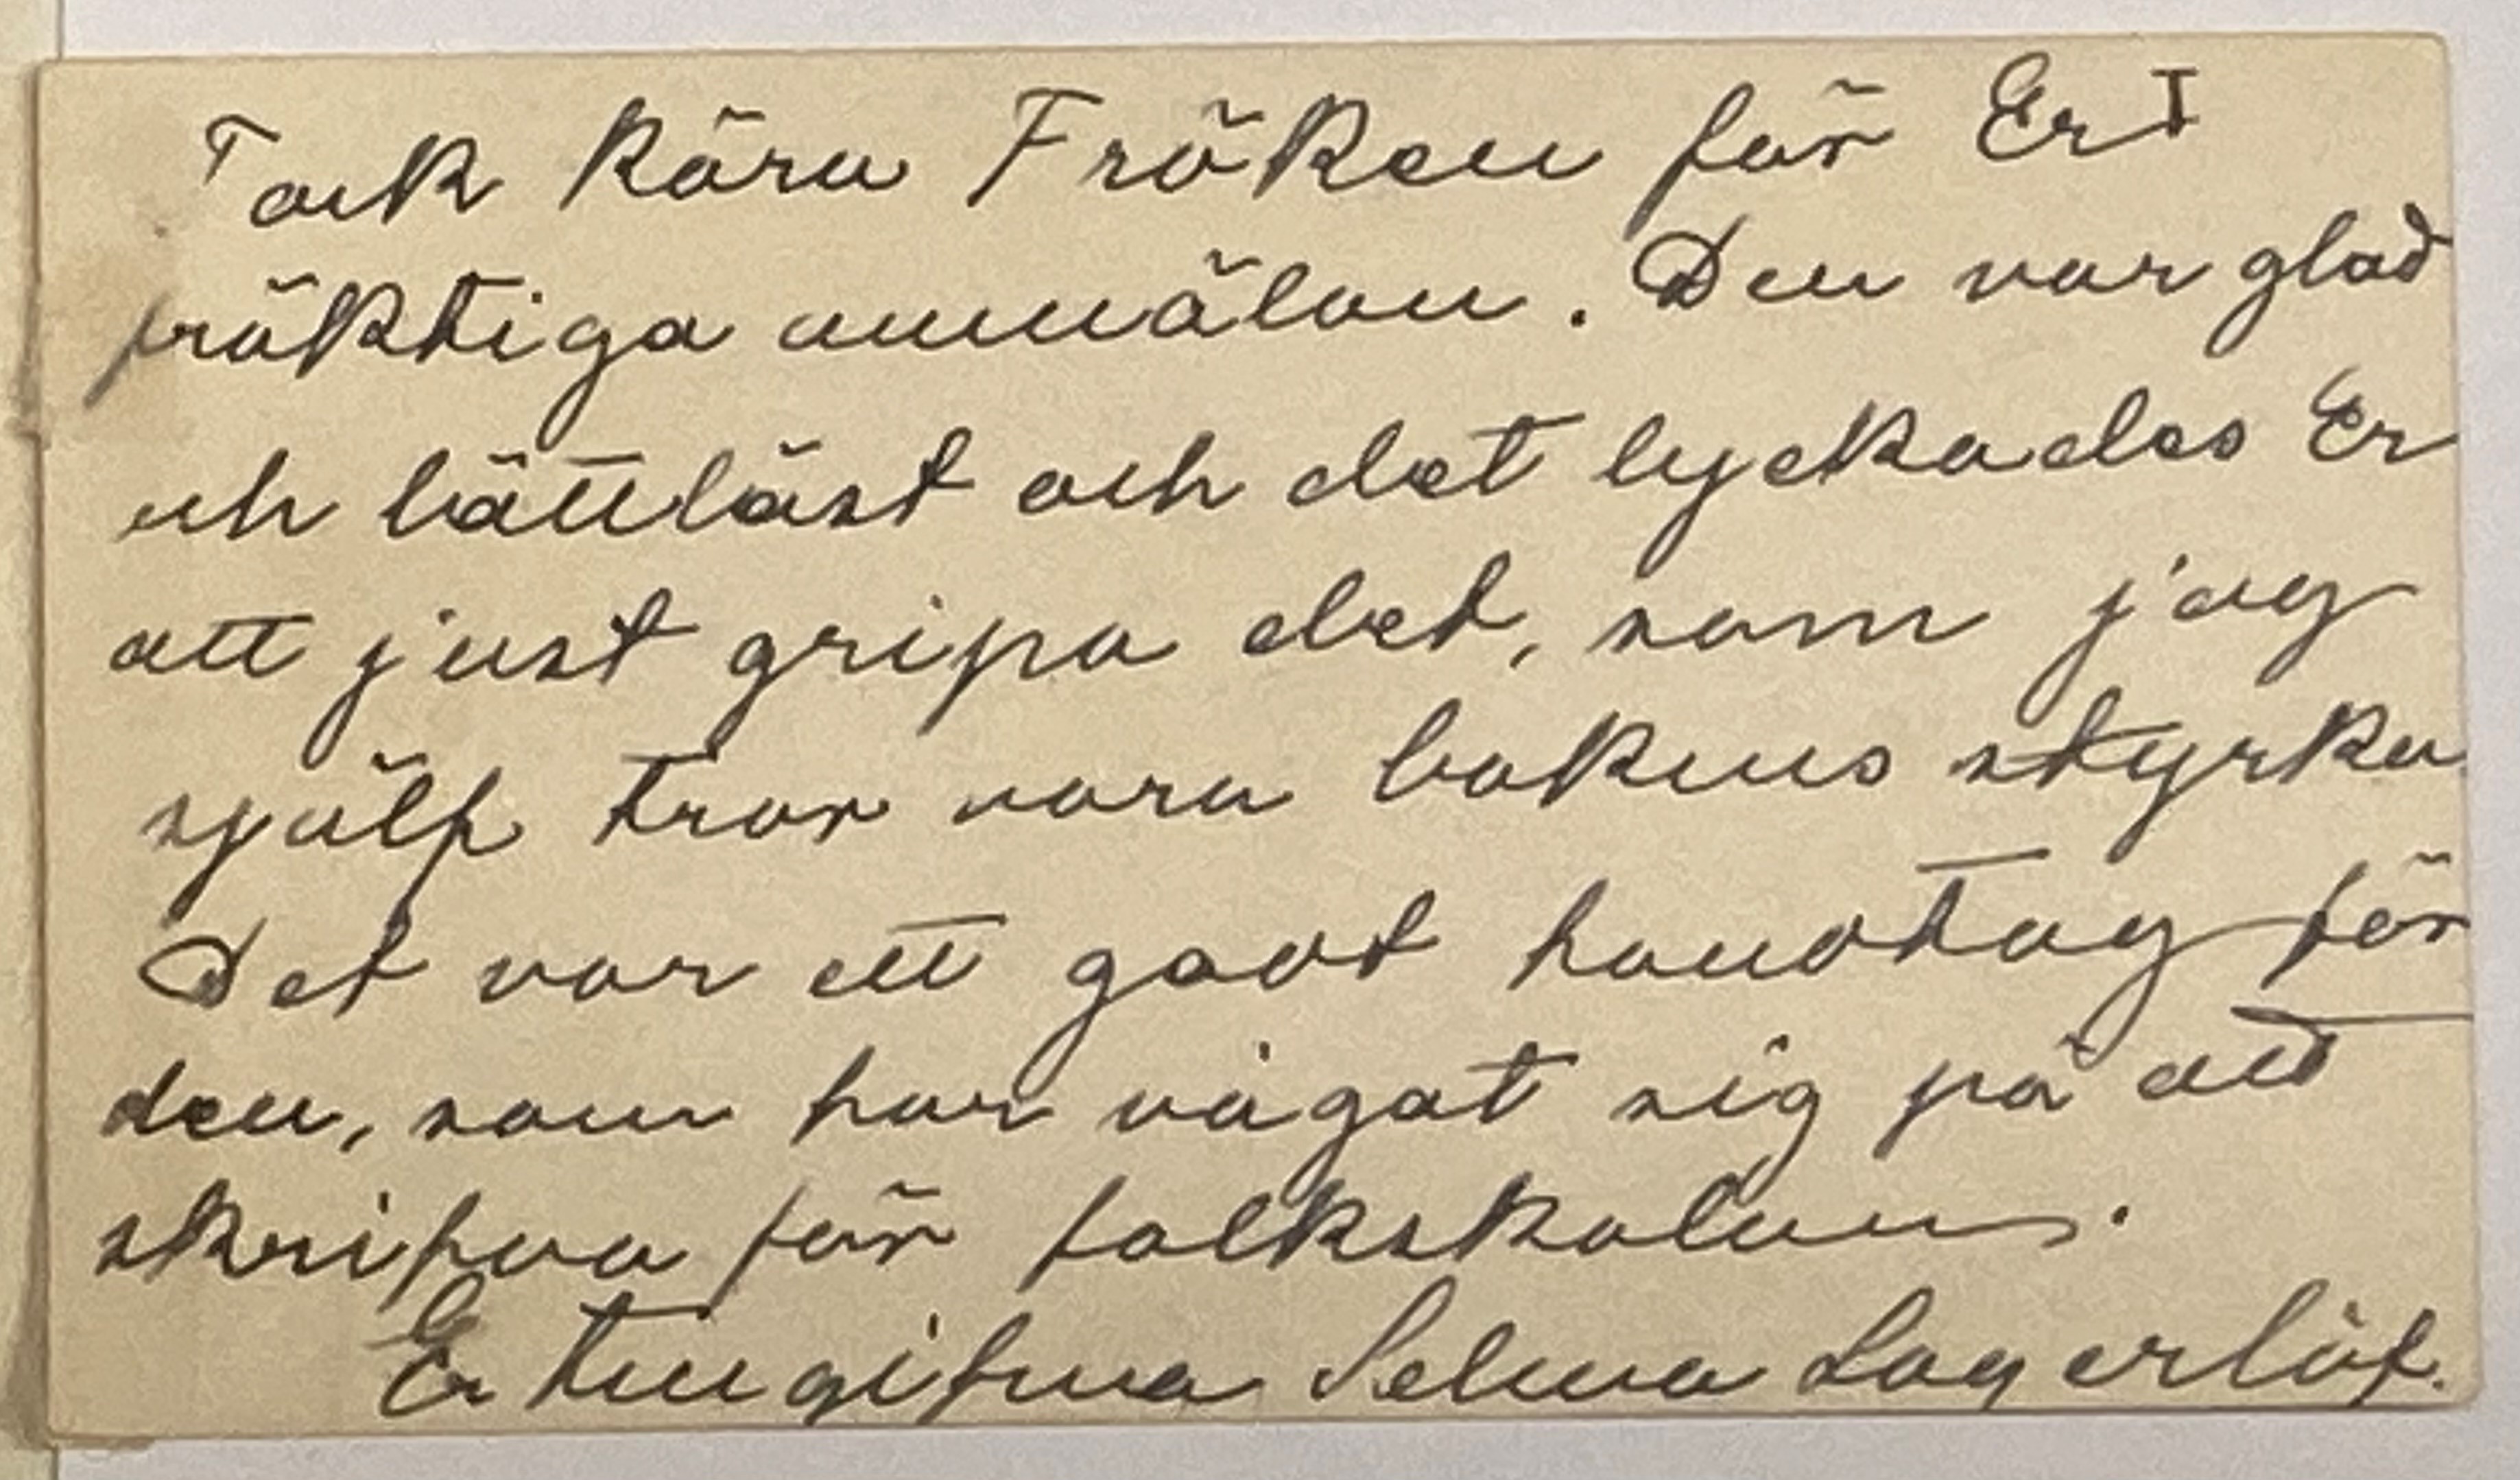 Tack kära Fröken för Ert
präktiga anmälan. Den var glad
och lättläst och det lyckades Er
att just gripa det, som jag
själf tror vara bokens styrka
Det var ett godt handtag för
den, som har vågat sig på att
skrifva för folkskolan.
Er tillgifna Selma Lagerlöf.